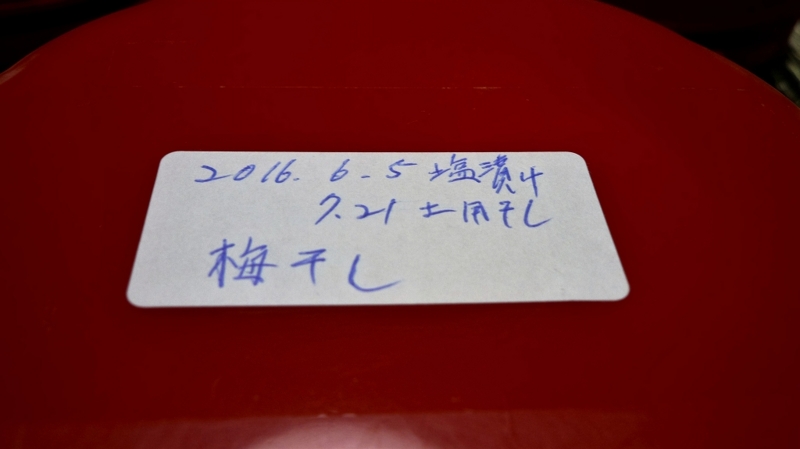 2016. 6. 5 塩漬け
7.21 土用干し
梅干し